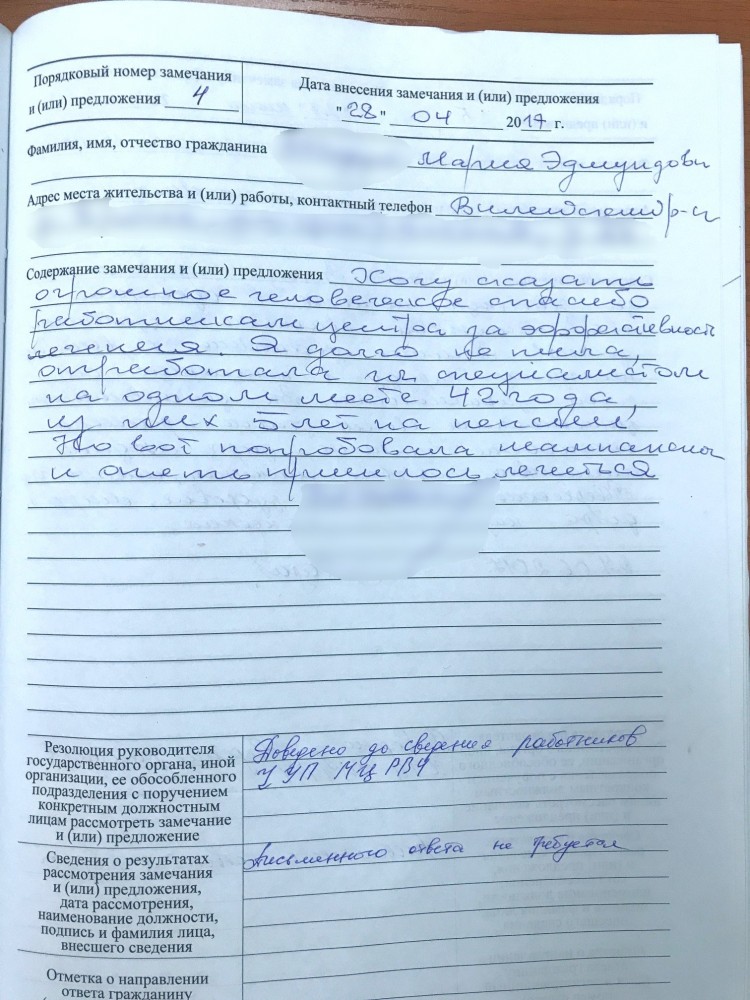 Порядковый номер замечания
и (или) предложения 4
Дата внесения замечания и (или) предложения
"28" 04 2017 г.
Фамилия, имя, отчество гражданина
Мария Эдмундовн
Адрес места жительства и (или) работы, контактный телефон Вилейский р-н
Содержание замечания и (или) предложения Хочу сказать
огромное человеческое спасибо
работникам центра за эффективность
лечения. Я долго не пила,
отработала гл. специалистом
на одном месте 42 года,
из них 5 лет на пенсии.
Но вот попробовала шампанског
и опять пришлось лечиться
Резолюция руководителя
государственного органа, иной
организации, ее обособленного
подразделения с поручением
конкретным должностным
лицам рассмотреть замечание
и (или) предложение
Доведено до сведения работников
УП МЦ
Сведения о результатах
рассмотрения замечания
и (или) предложения,
дата рассмотрения,
наименование должности,
подпись и фамилия лица,
внесшего сведения
Письменного ответа не требуется
Отметка о направлении
ответа гражданину